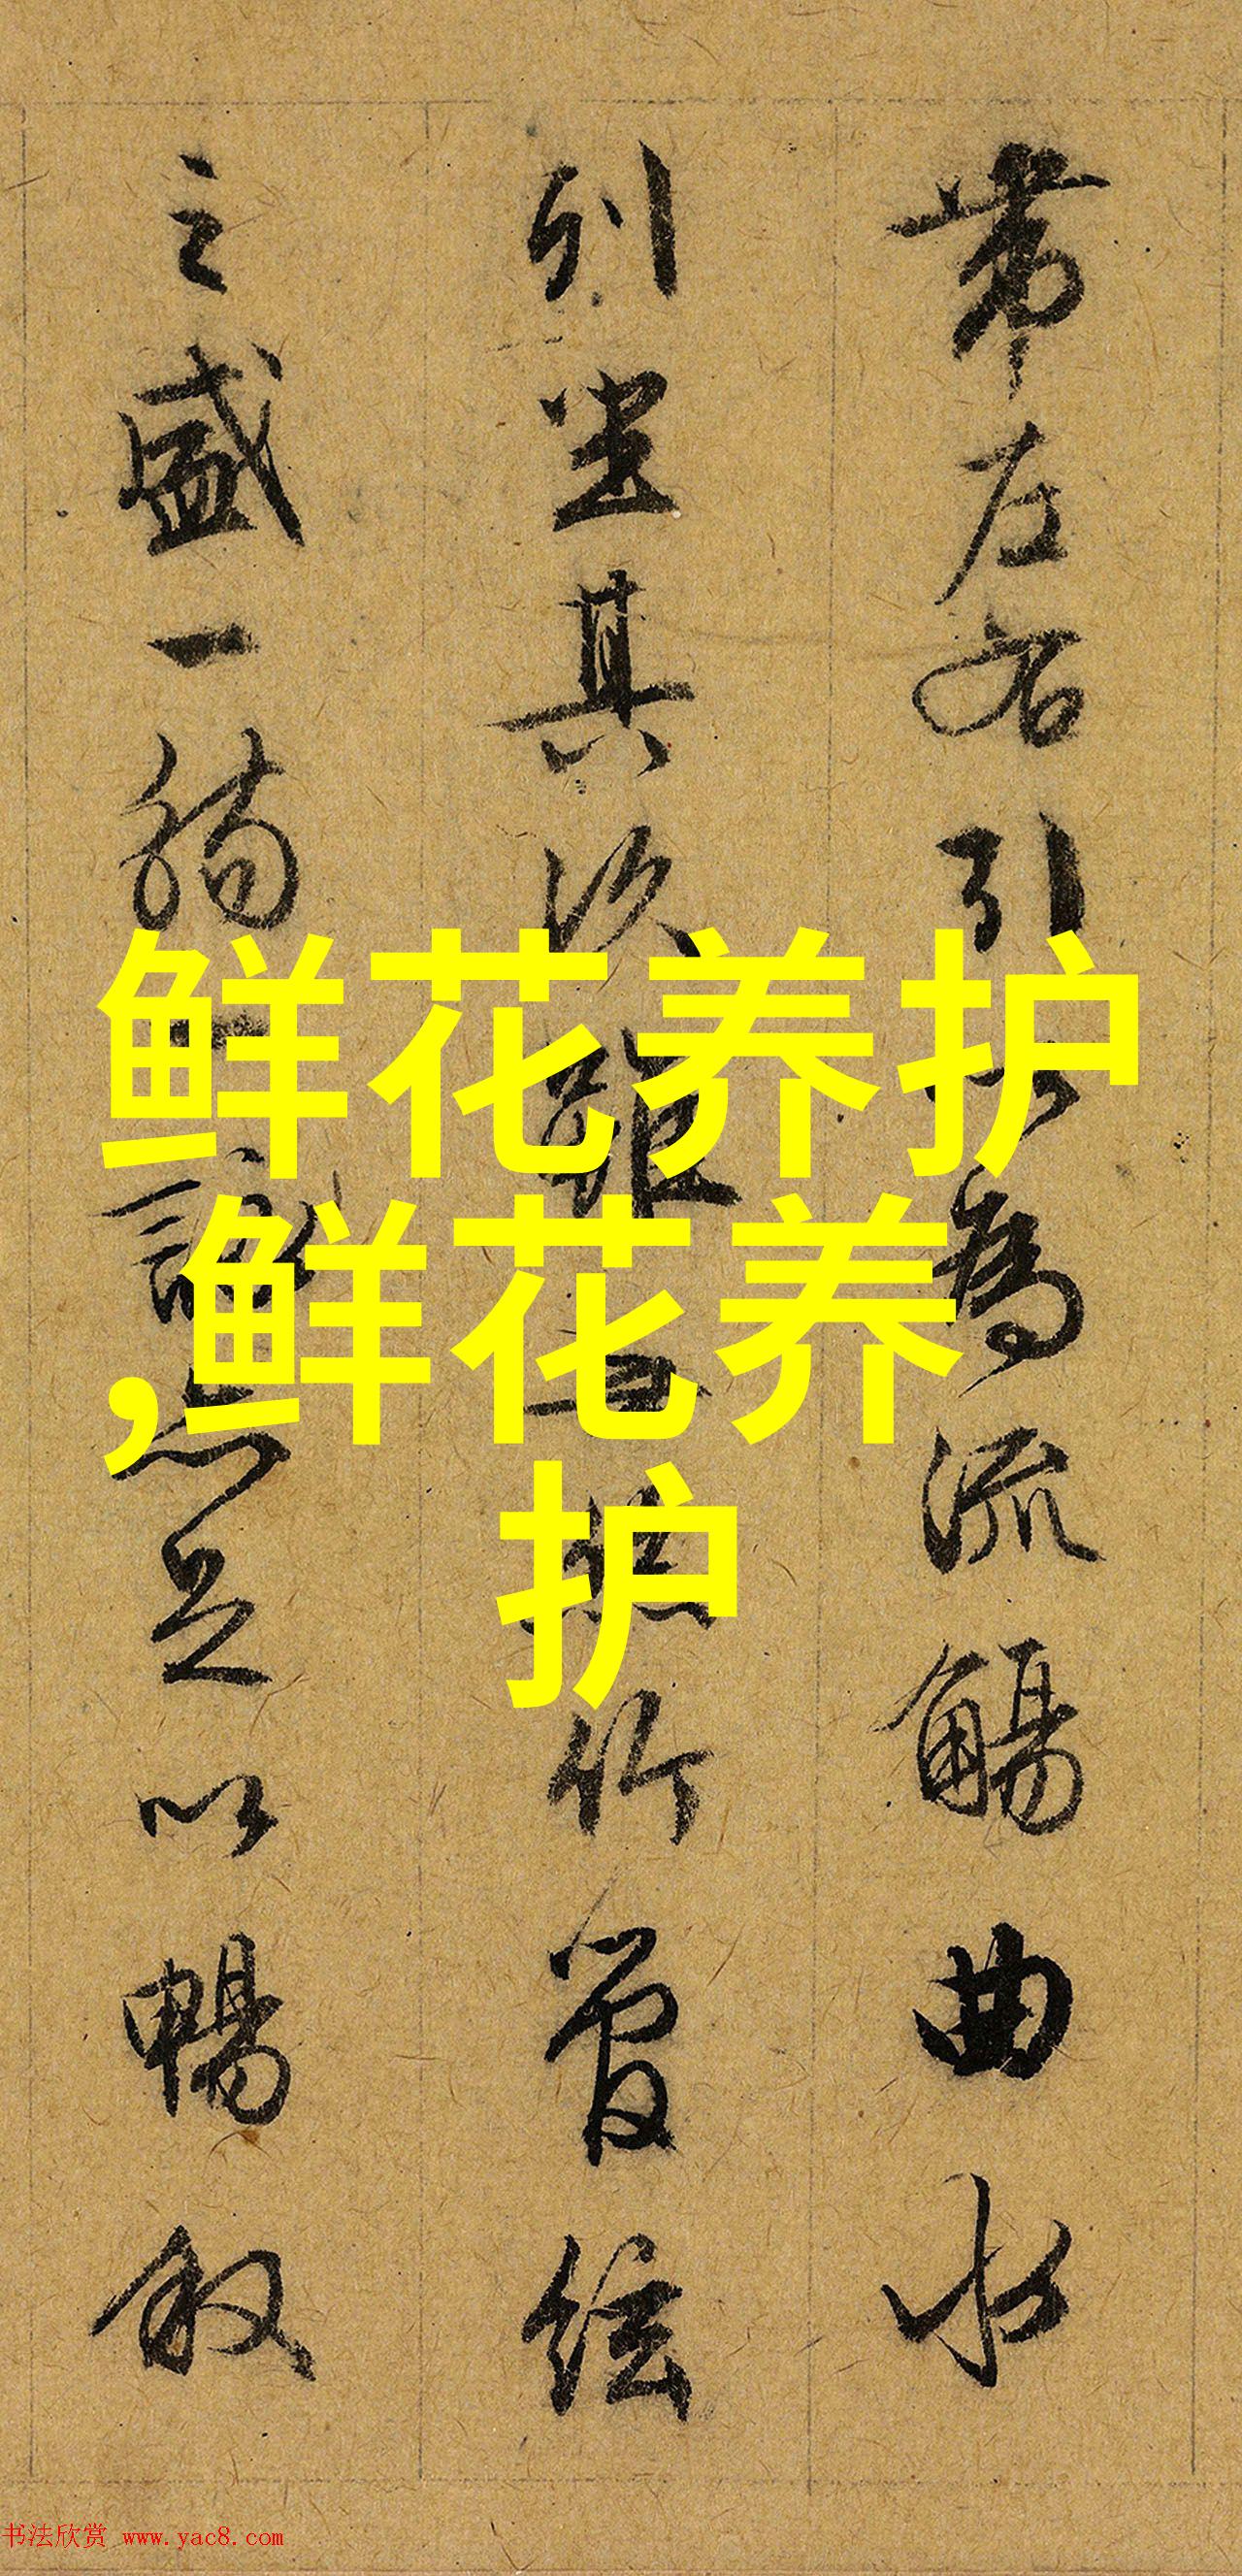 帶左右引為流觴曲水
列坐其次雖竹管絃
之盛一觴一詠亦足以暢敘
鲜花养护
,鲜花养
护
书法欣赏 www.yac8.com